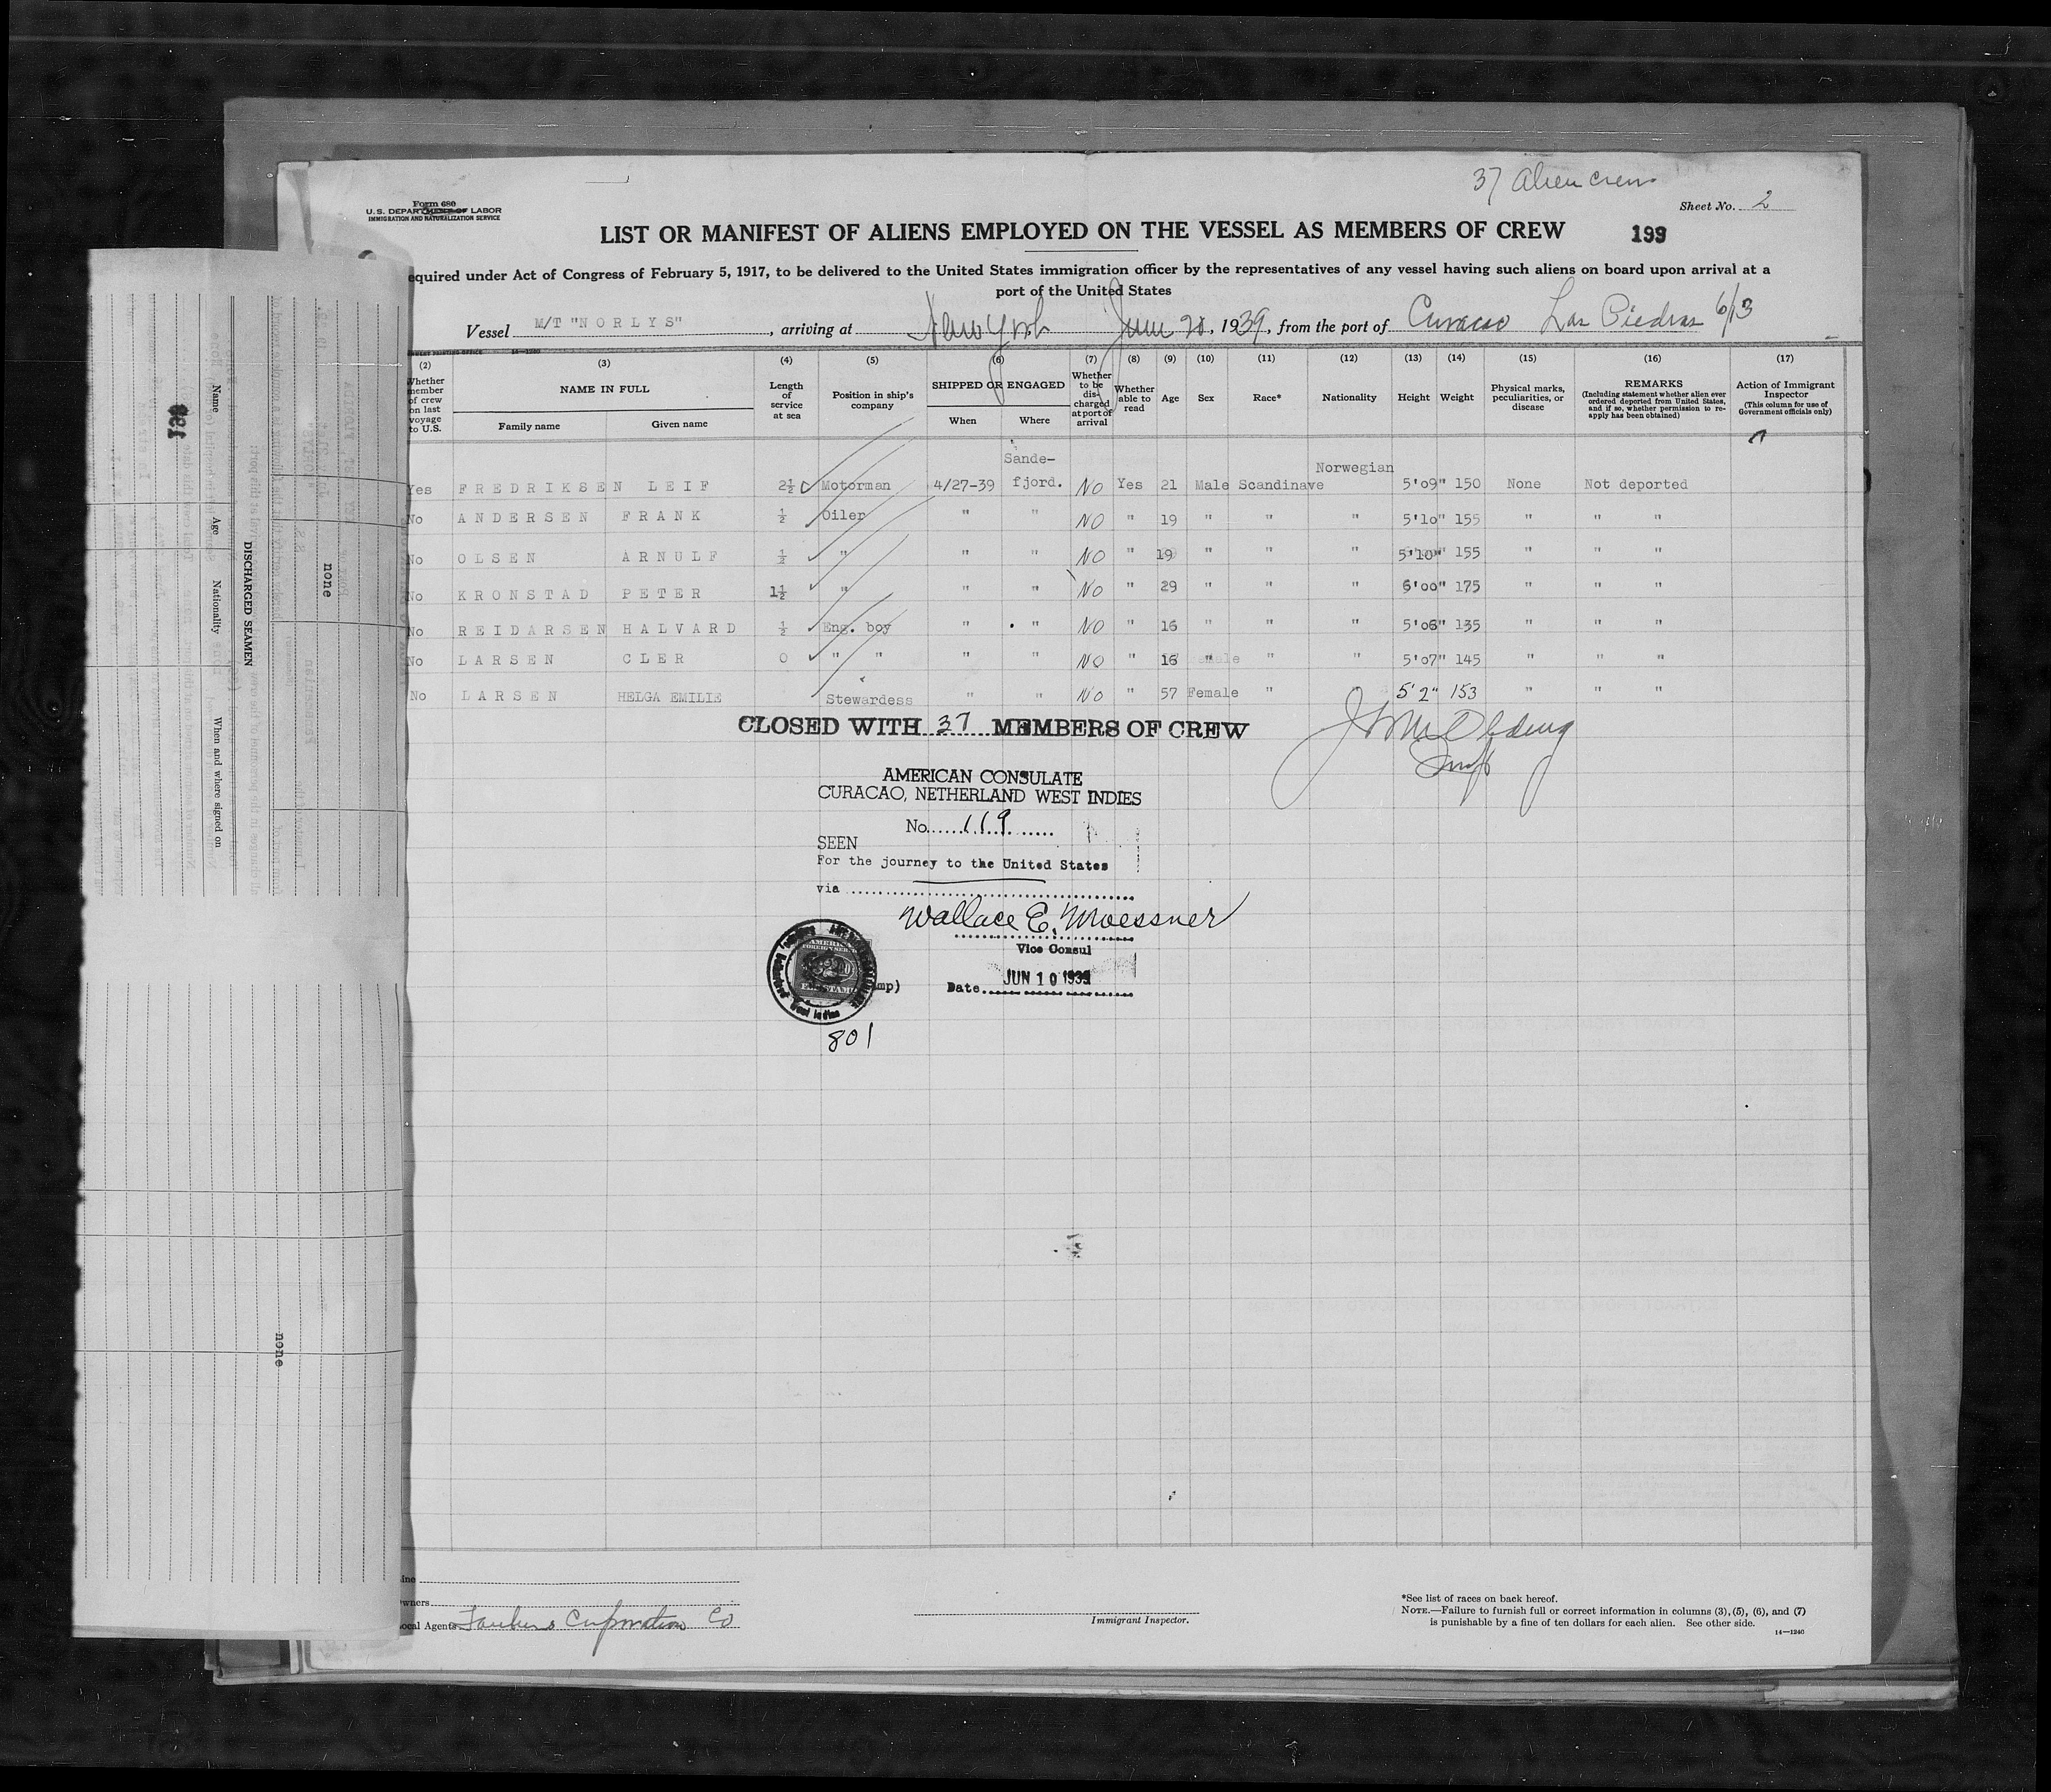 37 Alien crew
Form 680
U. S. DEPARTMENT OF LABOR
IMMIGRATION AND NATURALIZATION SERVICE
Sheet No. 2
LIST OR MANIFEST OF ALIENS EMPLOYED ON THE VESSEL AS MEMBERS OF CREW 199
equired under Act of Congress of February 5, 1917, to be delivered to the United States immigration officer by the representatives of any vessel having such aliens on board upon arrival at a
port of the United States
Vessel M/T "NORLYS", arriving at New York June 20, 1939, from the port of Curacao Las Piedras 6/13
(2) (3) (4) (5) (6) (7) (8) (9) (10) (11) (12) (13) (14) (15) (16) (17)
Whether member of crew on last voyage to U.S.
NAME IN FULL
Family name Given name
Length of service at sea
Position in ship's company
SHIPPED OR ENGAGED
When Where
Whether to be discharged at port of arrival
Whether able to read
Age
Sex
Race*
Nationality
Height
Weight
Physical marks, peculiarities, or disease
REMARKS
(Including statement whether alien ever ordered deported from United States, and if so, whether permission to reapply has been obtained)
Action of Immigrant Inspector
(This column for use of Government officials only)
Yes FREDRIKSEN LEIF 2½ Motorman 4/27-39 Sande-fjord. NO Yes 21 Male Scandinave Norwegian 5'09" 150 None Not deported
No ANDERSEN FRANK ½ Oiler " " NO " 19 " " " 5'10" 155 " " "
No OLSEN ARNULF ½ " " " NO " 19 " " " 5'10" 155 " " "
No KRONSTAD PETER 1½ " " " NO " 29 " " " 6'00" 175 " " "
No REIDARSEN HALVARD ½ Eng. boy " " NO " 16 " " " 5'06" 135 " " "
No LARSEN CLER 0 " " " " NO " 16 " " " 5'07" 145 " " "
No LARSEN HELGA EMILIE Stewardess " " NO " 57 Female " " 5'2" 153 " " "
CLOSED WITH 37 MEMBERS OF CREW
Insp
AMERICAN CONSULATE
CURACAO, NETHERLAND WEST INDIES
No. 119
SEEN
For the journey to the United States
via
Wallace E. Moessner
Vice Consul
Date JUN 10 1939
mp)
801
199
Name Age Nationality When and where signed on
DISCHARGED SEAMEN
none
none
ine
wners
ocal Agents Tankers Corporation Co
Immigrant Inspector.
*See list of races on back hereof.
NOTE.—Failure to furnish full or correct information in columns (3), (5), (6), and (7)
is punishable by a fine of ten dollars for each alien. See other side.
14—1240